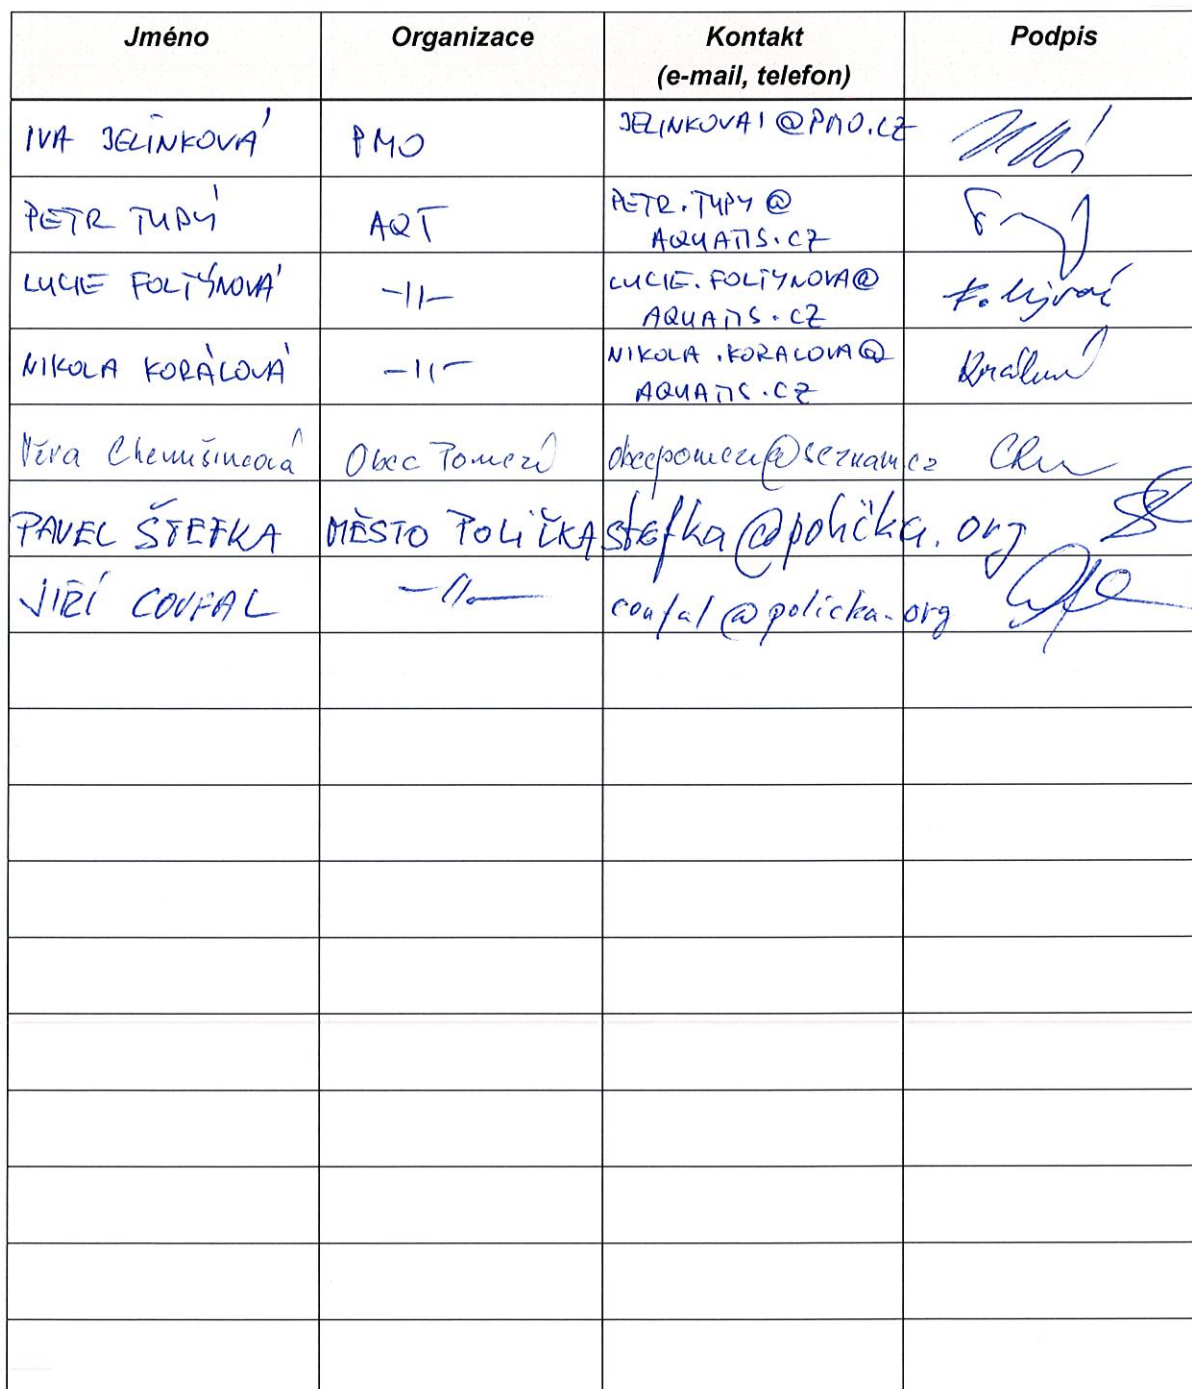 Jméno Organizace Kontakt Podpis
(e-mail, telefon)
IVA JELÍNKOVÁ PMO JELINKOVAI@PMO.CZ
PETR TUPÝ AQT PETR.TUPY@
AQUATIS.CZ
LUCIE FOLTÝNOVÁ -||- LUCIE.FOLTYNOVA@
AQUATIS.CZ
NIKOLA KORÁLOVÁ -||- NIKOLA.KORALOVA@
AQUATIS.CZ
Věra Obec Pomezí obecpomezi@seznam.cz
PAVEL ŠTEFKA MĚSTO POLIČKA stefka@policka.org
JIŘÍ COUFAL -||- coufal@policka.org